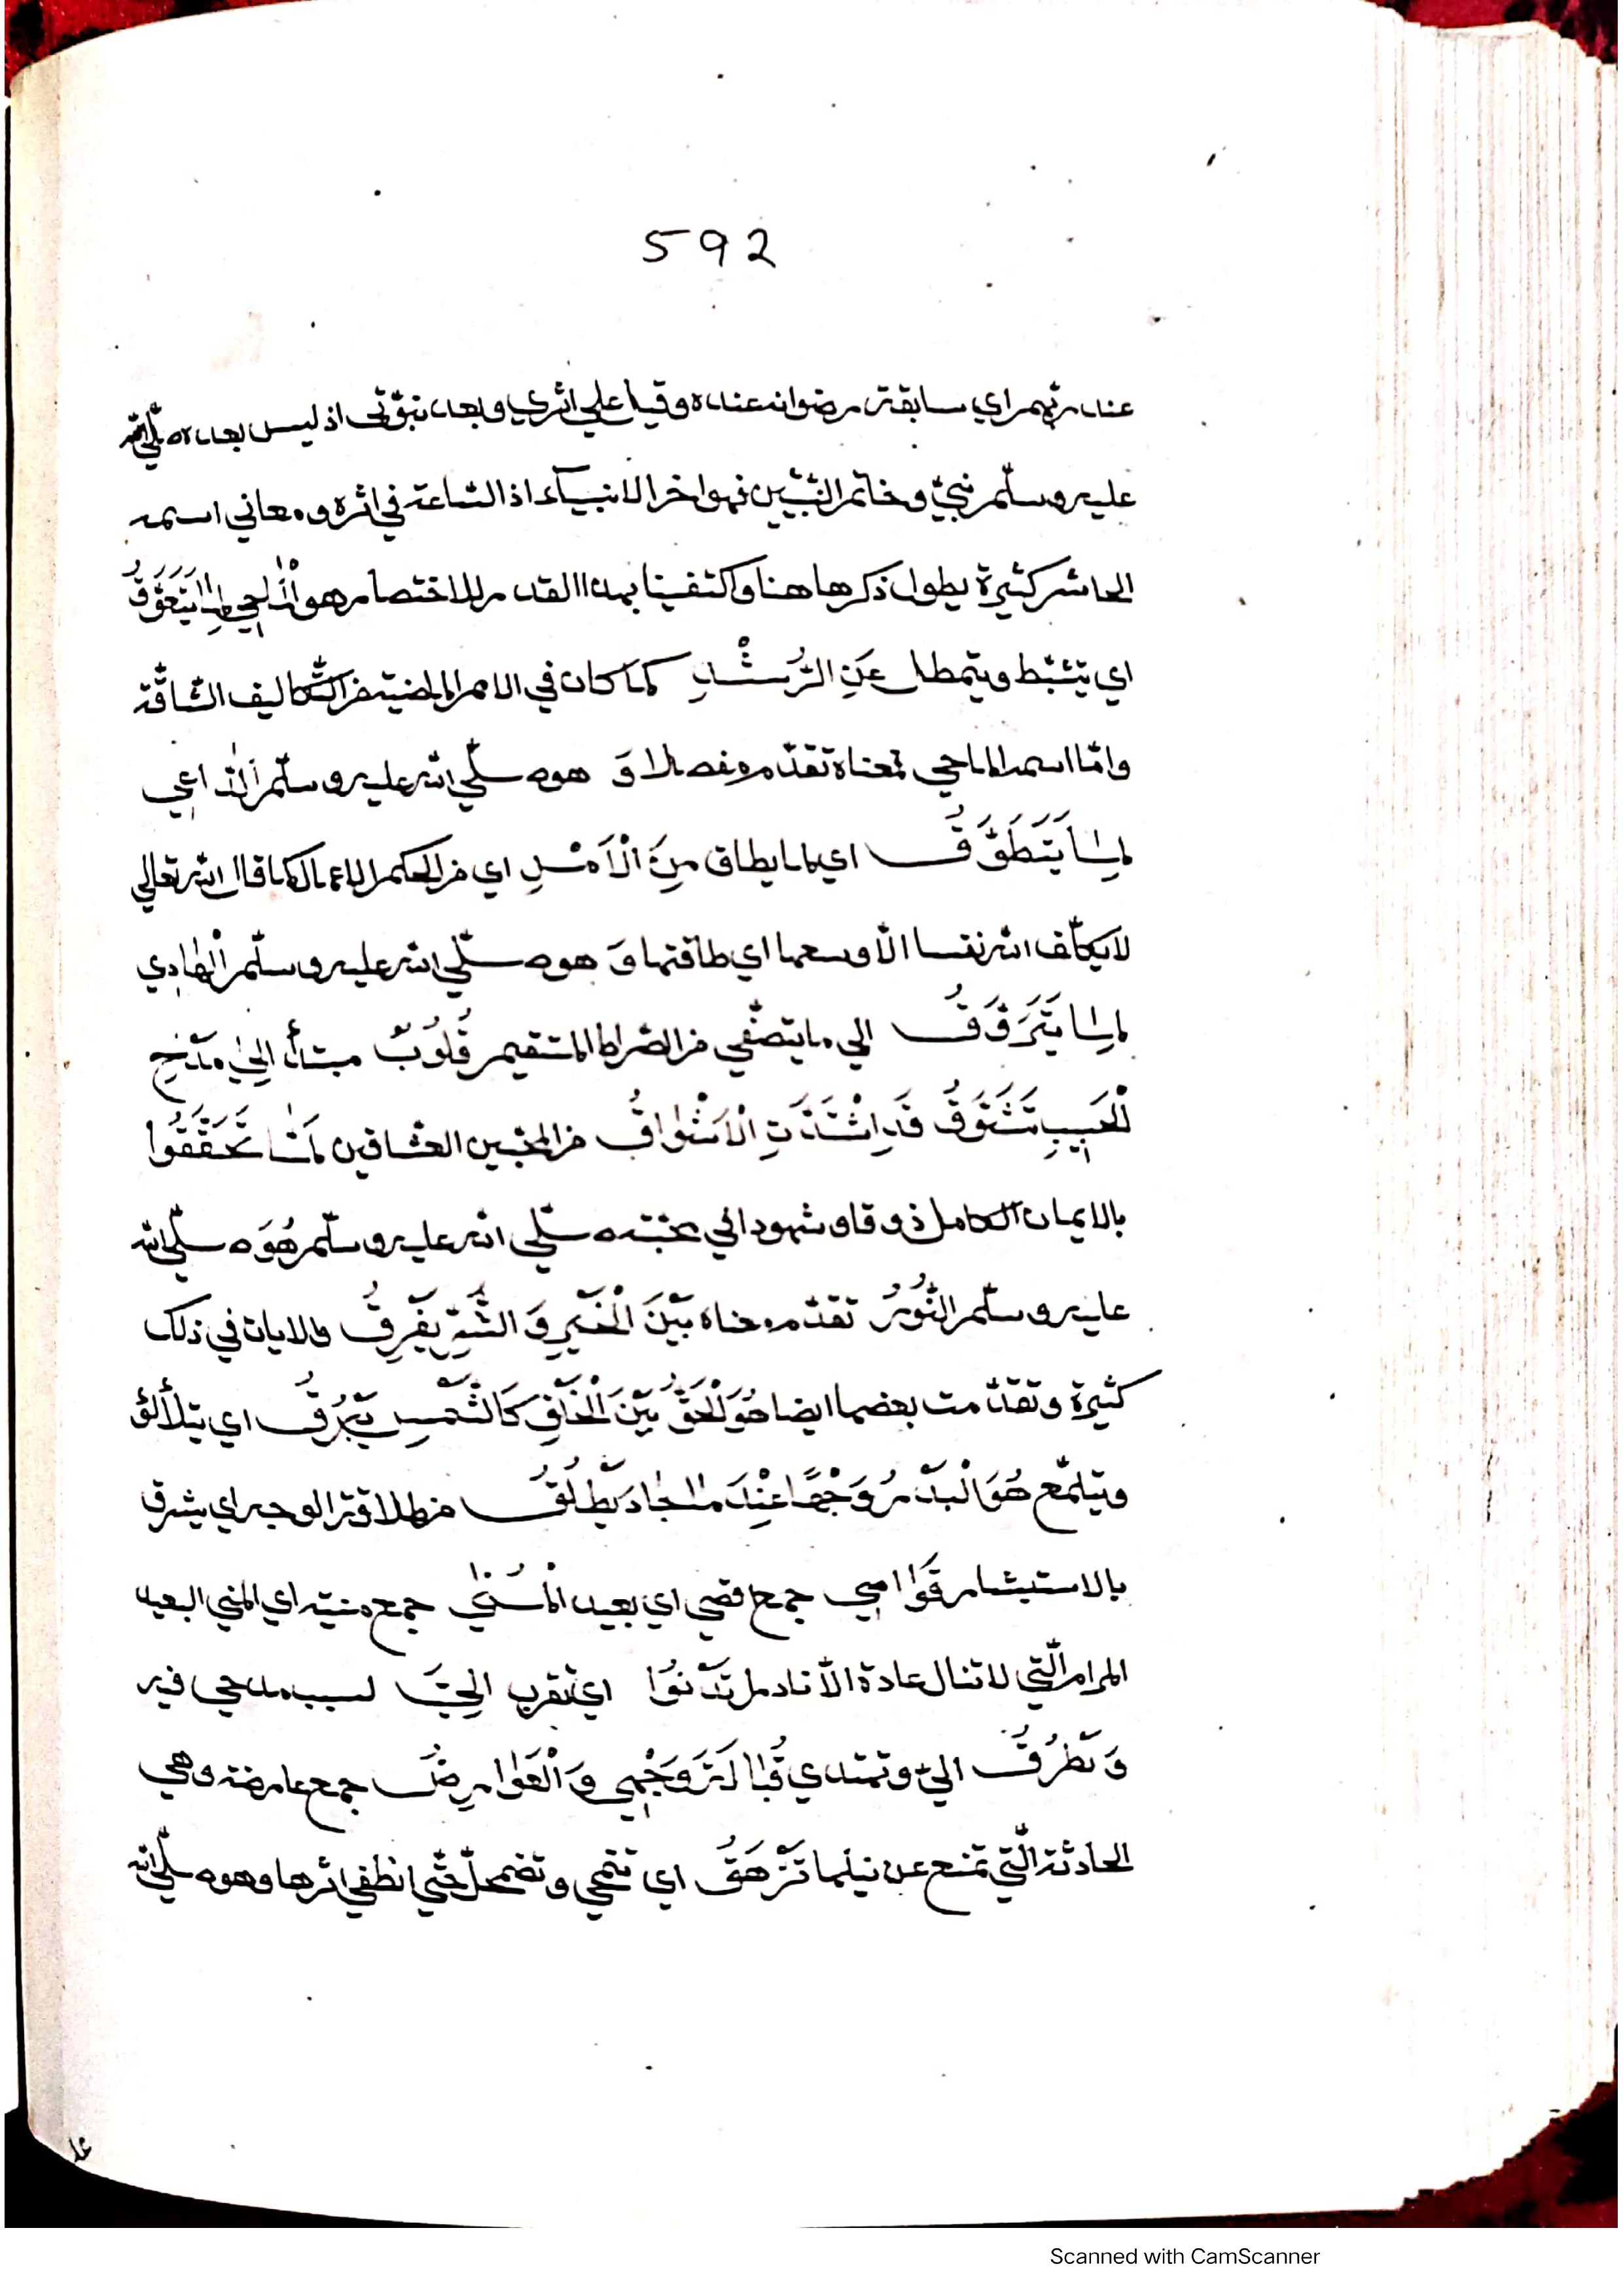 592
عند ربهم اي سابقة رضوانه عنده وقيل علي اثري وبعد نبوتى اذ ليس بعده صلّي الله
عليه وسلّم نبيّ وخاتم النبيّين فهو اخر الانبيآء اذ السّاعة في اثره ومعاني اسمه
الحاشر كثيرة يطول ذكرها هنا واكتفينا بهذا القدر للاختصار هو الْمَاحِي لِمَا يَتَعَوَّقُ
اي يتثبّط ويتمطل عَنِ الرُّشْدِ كما كان في الامم الماضية من التّكاليف الشاقّة
وامّا اسمه الماحي فمعناه تقدّم مفصلا وَ هو صلّي الله عليه وسلّم الدّاعِي
لِمَا يَتَطَوَّقُ اي لما يطاق مِنَ الْأَمْرِ اي من الحكم الاعمال كما قال الله تعالي
لا يكلّف الله نفسا الّا وسعها اي طاقتها وَ هو صلّي الله عليه وسلّم الْهَادِي
لِمَا يَتَرَوَّقُ الي ما يتصفّي من الصّراط المستقيم قُلُوبٌ مبتدأ اِلَى مَدْحِ
الْحَبِيبِ تَشَوَّقُ قَدِ اشْتَدَّتِ الْأَشْوَاقُ من المحبّين العشّاقين لَمَّا تَحَقَّقُوا
بالايمان الكامل ذوقا وشهودا الي محبّته صلّي الله عليه وسلّم هُوَ صلّي الله
عليه وسلّم النُّورُ تقدّم معناه بَيْنَ الْخَيْرِ وَ الشَّرِّ يَفْرِقُ والايات في ذلك
كثيرة وتقدّمت بعضها ايضا هُوَ الْحَقُّ بَيْنَ الْخَلْقِ كَالشَّمْسِ يَبْرُقُ اي يتلألؤ
ويتلمّع هُوَ الْبَدْرُ وَجْهًا عِنْدَمَا جَادَ يَطْلُقُ من طلاقة الوجه اي يشرق
بالاستبشار قَوَاصِي جمع قصي اي بعيد الْمُنَى جمع منية اي المني البعيد
المرام الّتي لا تنال عادة الّا نادرا تَدْنُوا اي تقرب اِلَيَّ لسبب مدحي فيه
وَ تَطْرُقُ اليّ وتهتدي قُبَالَةَ وَجْهِي وَ الْعَوَارِضُ جمع عارضة وهي
الحادثة الّتي تمنع عن نيلها تَزْهَقُ اي تنمحي وتضمحلّ حتّي انطفي اثرها وهو صلّي الله